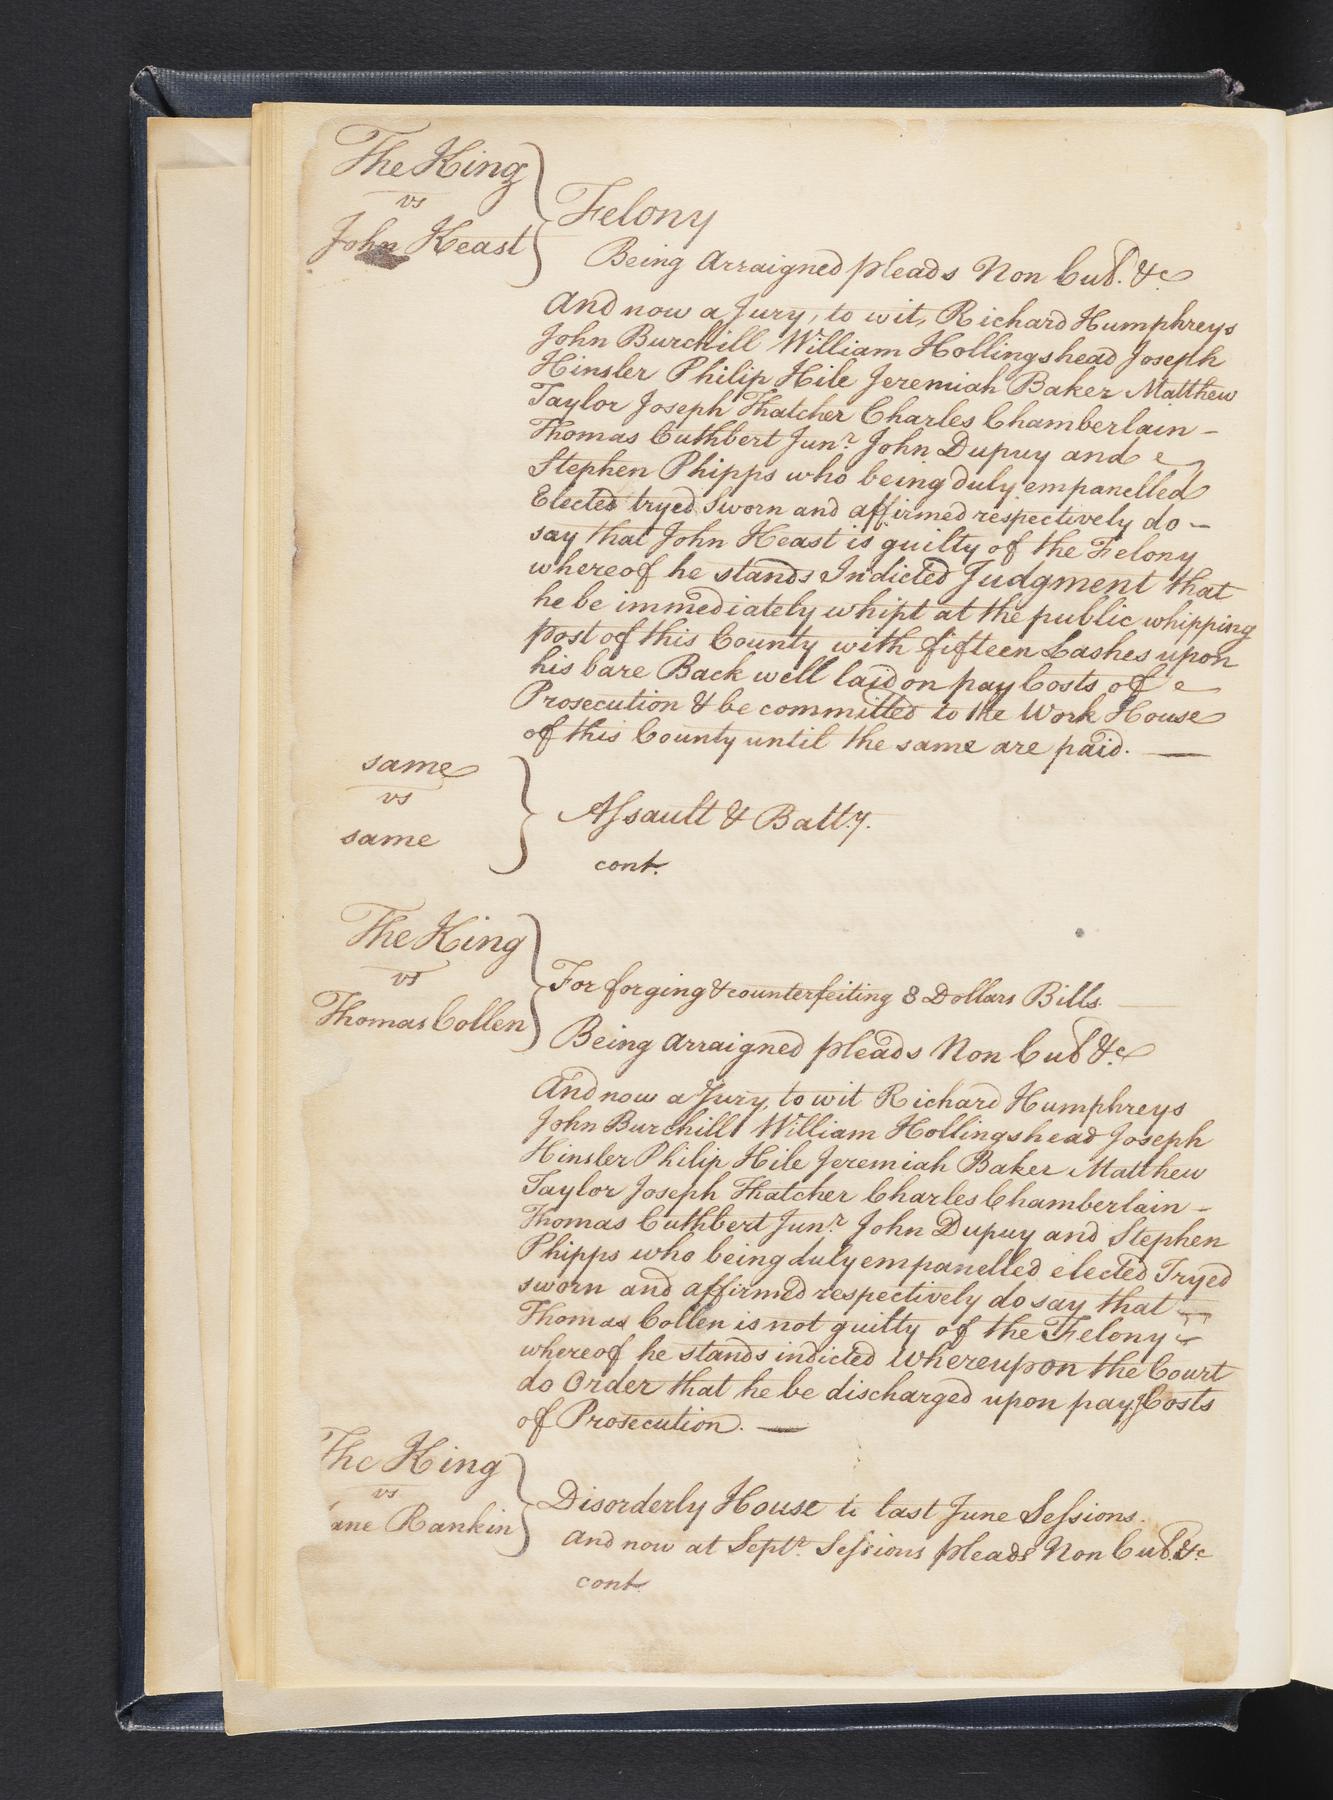 The King
vs
John Keast
Felony
Being Arraigned pleads Non Cul. &c
And now a Jury, to wit, Richard Humphreys
John Burchill William Hollingshead Joseph
Hinsler Philip Hile Jeremiah Baker Matthew
Taylor Joseph Thatcher Charles Chamberlain -
Thomas Cuthbert Junr. John Dupuy and
Stephen Phipps who being duly empanelled
Elected tryed Sworn and affirmed respectively do -
say that John Keast is guilty of the Felony
whereof he stands Indicted Judgment that
he be immediately whipt at the public whipping
post of this County with fifteen Lashes upon
his bare Back well laid on pay Costs of
Prosecution & be committed to the Work House
of this County until the same are paid. —
same
vs
same
Assault & Batt.y.
cont.
The King
vs
Thomas Collen
For forging & counterfeiting 8 Dollars Bills
Being Arraigned pleads Non Cul &c.
And now a Jury, to wit Richard Humphreys
John Burchill William Hollingshead Joseph
Hinsler Philip Hile Jeremiah Baker Matthew
Taylor Joseph Thatcher Charles Chamberlain -
Thomas Cuthbert Junr. John Dupuy and Stephen
Phipps who being duly empanelled elected Tryed
sworn and affirmed respectively do say that
Thomas Collen is not guilty of the Felony
whereof he stands indicted Whereupon the Court
do Order that he be discharged upon payg Costs
of Prosecution. —
The King
vs
ane Rankin
Disorderly House to last June Sessions.
And now at Septr. Sessions pleads Non Cul. &c
cont